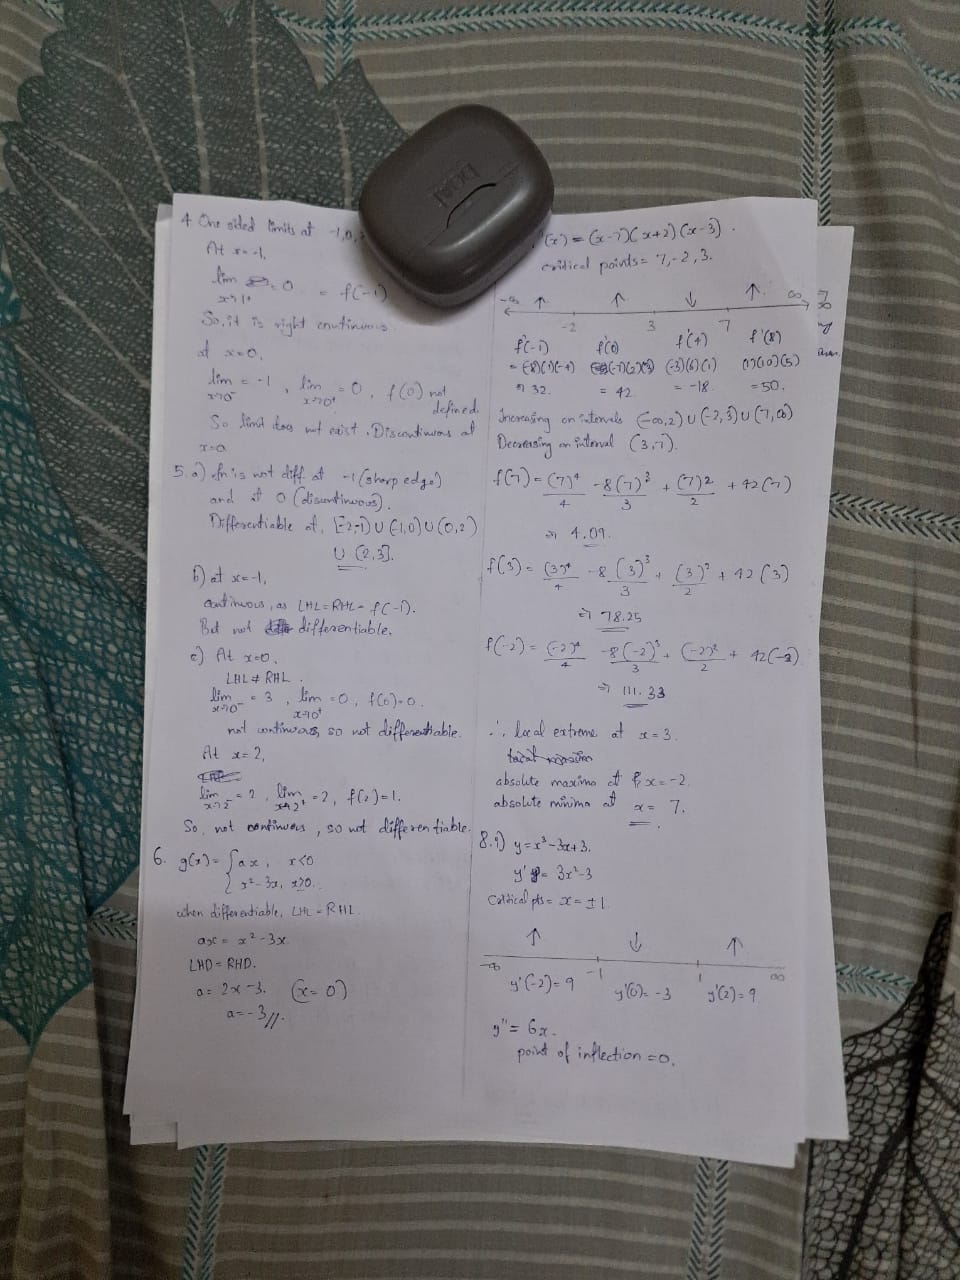 4. One sided limits at -1,0,
At x=-1,
lim = 0 = f(-1)
x→1⁺
So, it is right continuous.
at x=0,
lim = -1 , lim = 0, f(0) not
x→0⁻ x→0⁺ defined.
So limit does not exist. Discontinuous at
x=0
5. a) fn is not diff. at -1 (sharp edge)
and at 0 (discontinuous).
Differentiable at, [-2,-1) ∪ (-1,0) ∪ (0,2)
∪ (2,3].
b) at x=-1,
continuous, as LHL = RHL = f(-1).
But not differentiable.
c) At x=0,
LHL ≠ RHL.
lim = 3, lim = 0, f(0)=0.
x→0⁻ x→0⁺
not continuous, so not differentiable.
At x=2,
lim = 2, lim = 2, f(2)=1.
x→2⁻ x→2⁺
So, not continuous, so not differentiable.
6. g(x) = { ax, x<0
x²-3x, x≥0.
when differentiable, LHL = RHL
ax = x²-3x
LHD = RHD.
a = 2x-3. (x=0)
a=-3//.
'(x) = (x-7)(x+2)(x-3).
critical points = 7,-2,3.
-∞ ↑ ↑ ↓ ↑ ∞
-2 3 7
f'(-1) f'(0) f'(4) f'(8)
(-3)(6)(1) (1)(10)(5)
⇒ 32 = 42 = -18 = 50.
Increasing on intervals (-∞,2) ∪ (-2,3) ∪ (7,∞)
Decreasing on interval (3,7).
f(7) = (7)⁴/4 - 8(7)³/3 + (7)²/2 + 42(7)
⇒ 4.09.
f(3) = (3)⁴/4 - 8(3)³/3 + (3)²/2 + 42(3)
⇒ 78.25
f(-2) = (-2)⁴/4 - 8(-2)³/3 + (-2)²/2 + 42(-2)
⇒ 111.33
∴ local extreme at x=3.
absolute maxima at x=-2.
absolute minima at x= 7.
8. y = x³-3x+3.
y' = 3x²-3
Critical pts = x = ±1.
↑ ↓ ↑
-∞ -1 1 ∞
y'(-2)=9 y'(0)=-3 y'(2)=9
y'' = 6x.
point of inflection = 0.